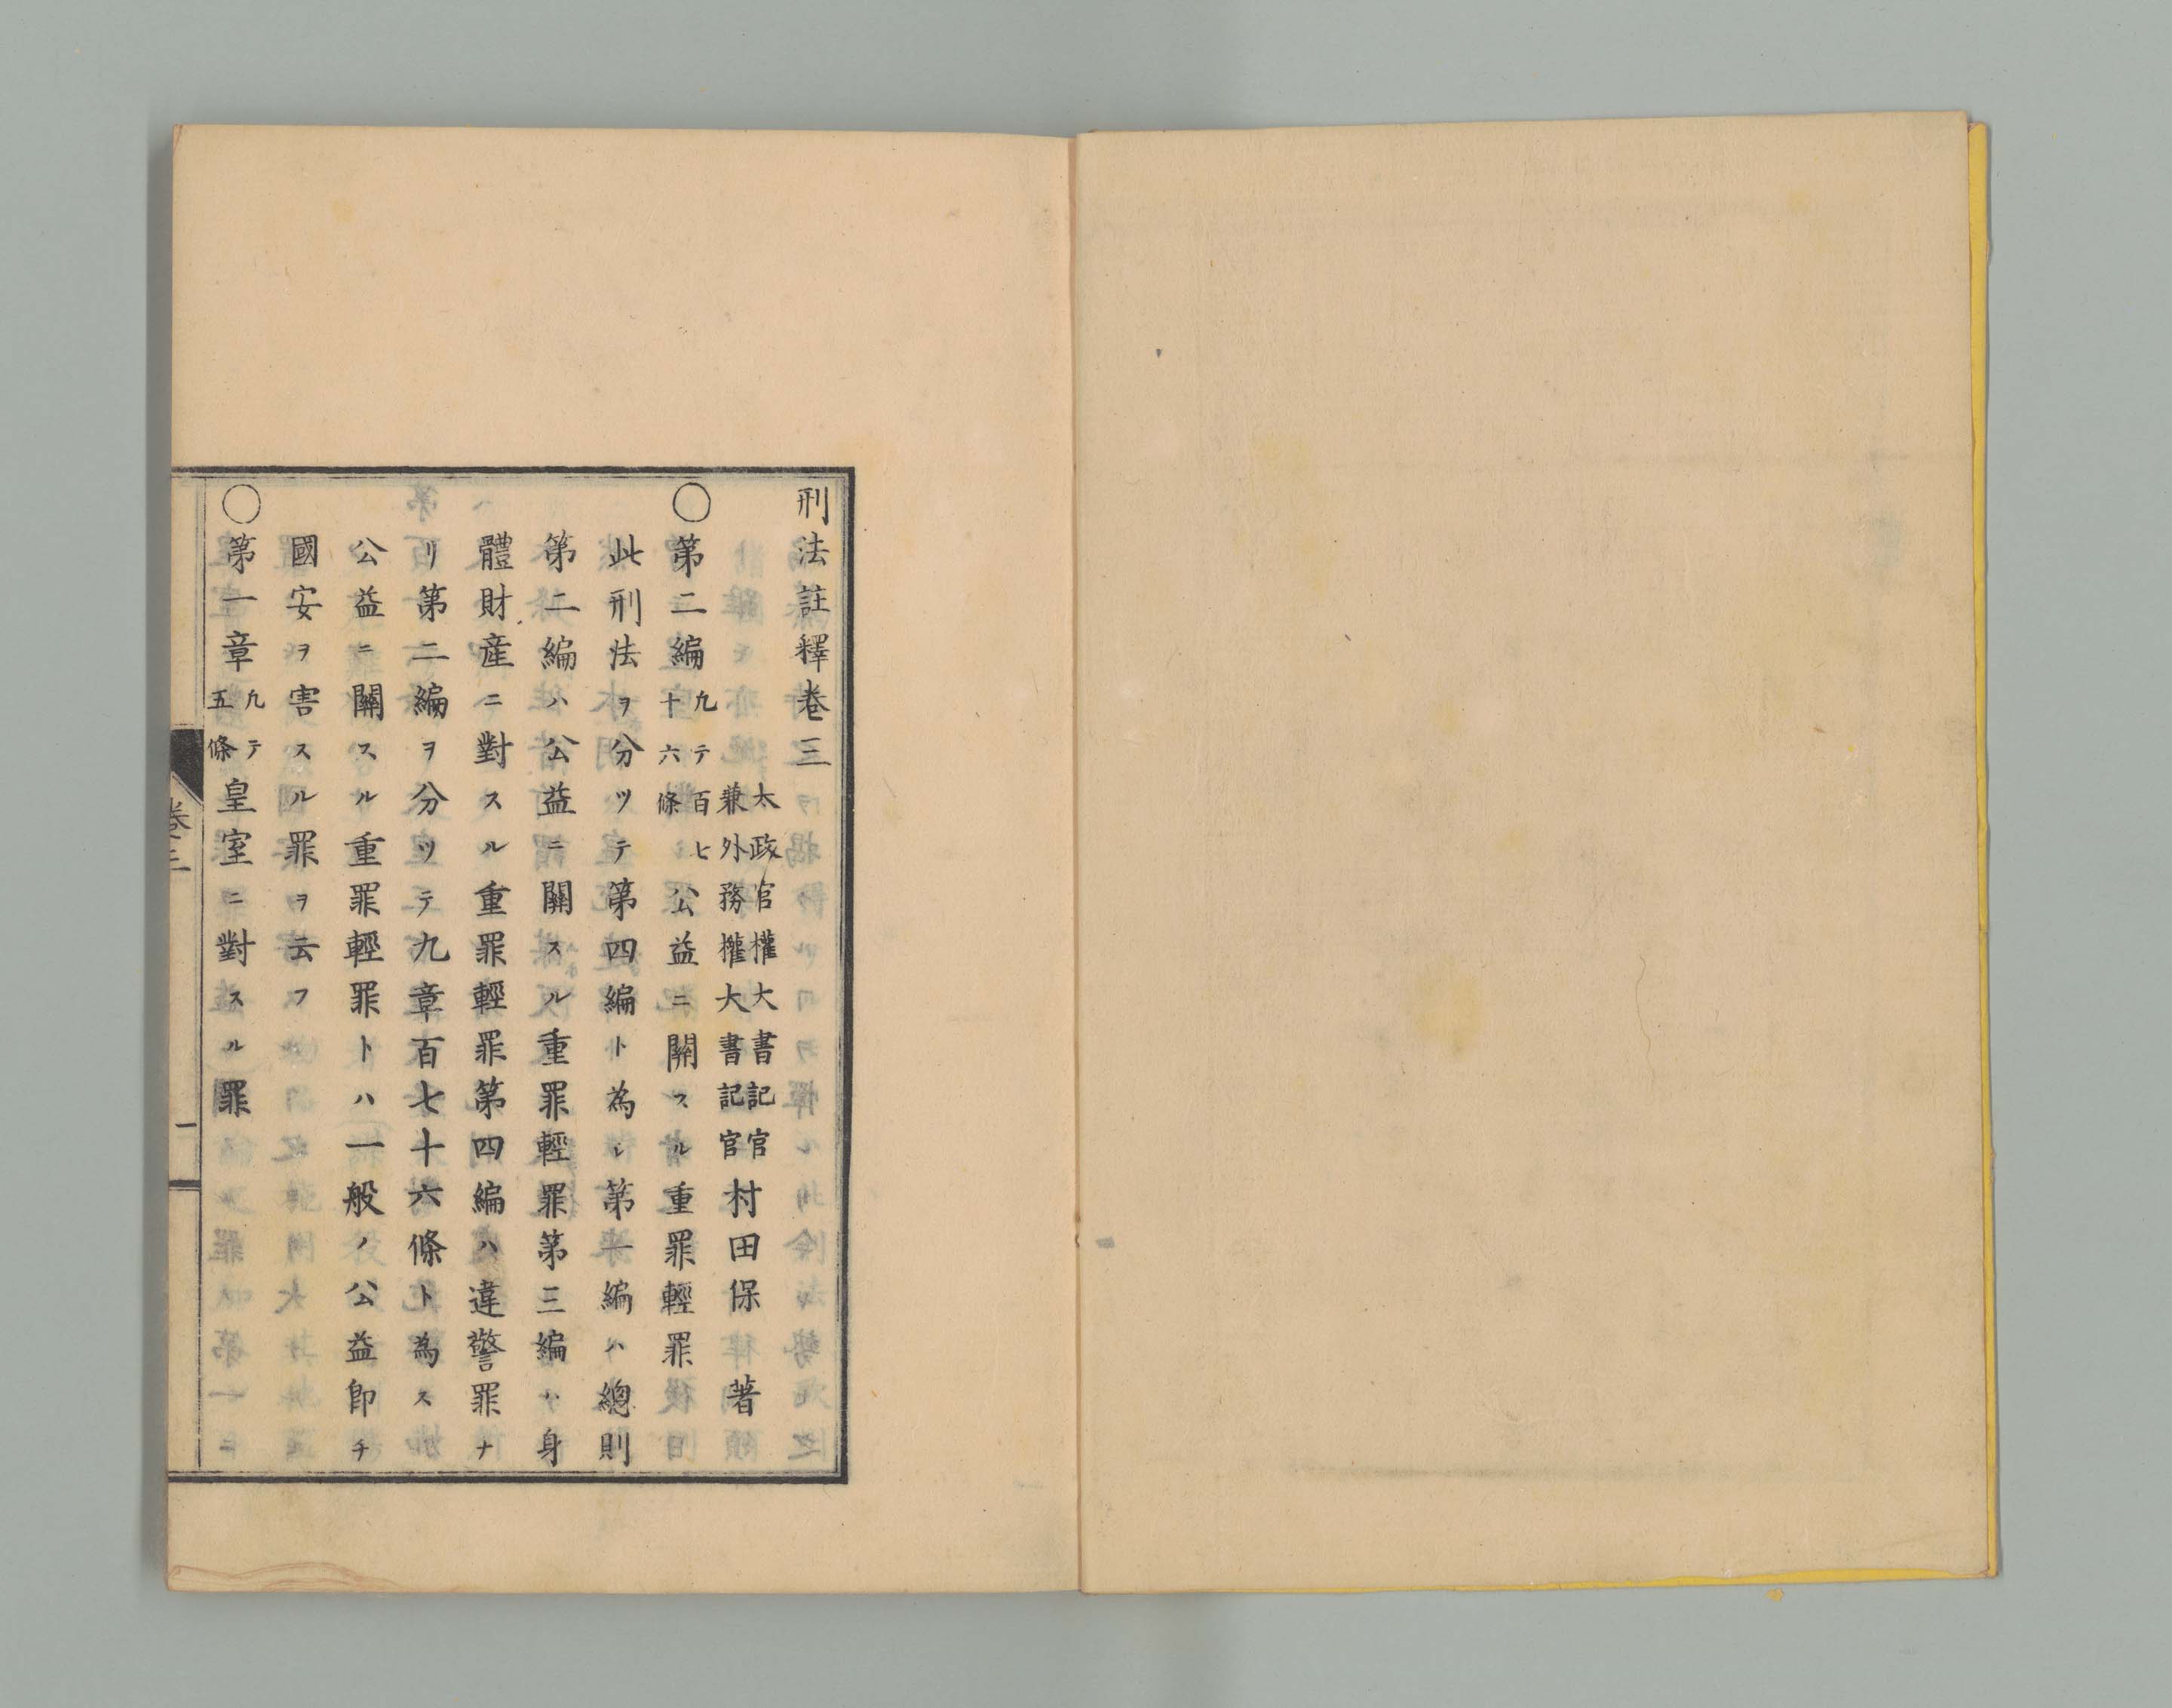 刑法註釋卷三
太政官權大書記官
兼外務權大書記官
村田保 著
○第二編 凡テ百七十六條 公益ニ關スル重罪輕罪
此刑法ヲ分ツテ第四編ト為シ第一編ハ總則
第二編ハ公益ニ關スル重罪輕罪第三編ハ身
體財産ニ對スル重罪輕罪第四編ハ違警罪ナ
リ第二編ヲ分ツテ九章百七十六條ト為ス
公益ニ關スル重罪輕罪トハ一般ノ公益即チ
國安ヲ害スル罪ヲ云フ
○第一章 凡テ五條 皇室ニ對スル罪
卷三
一